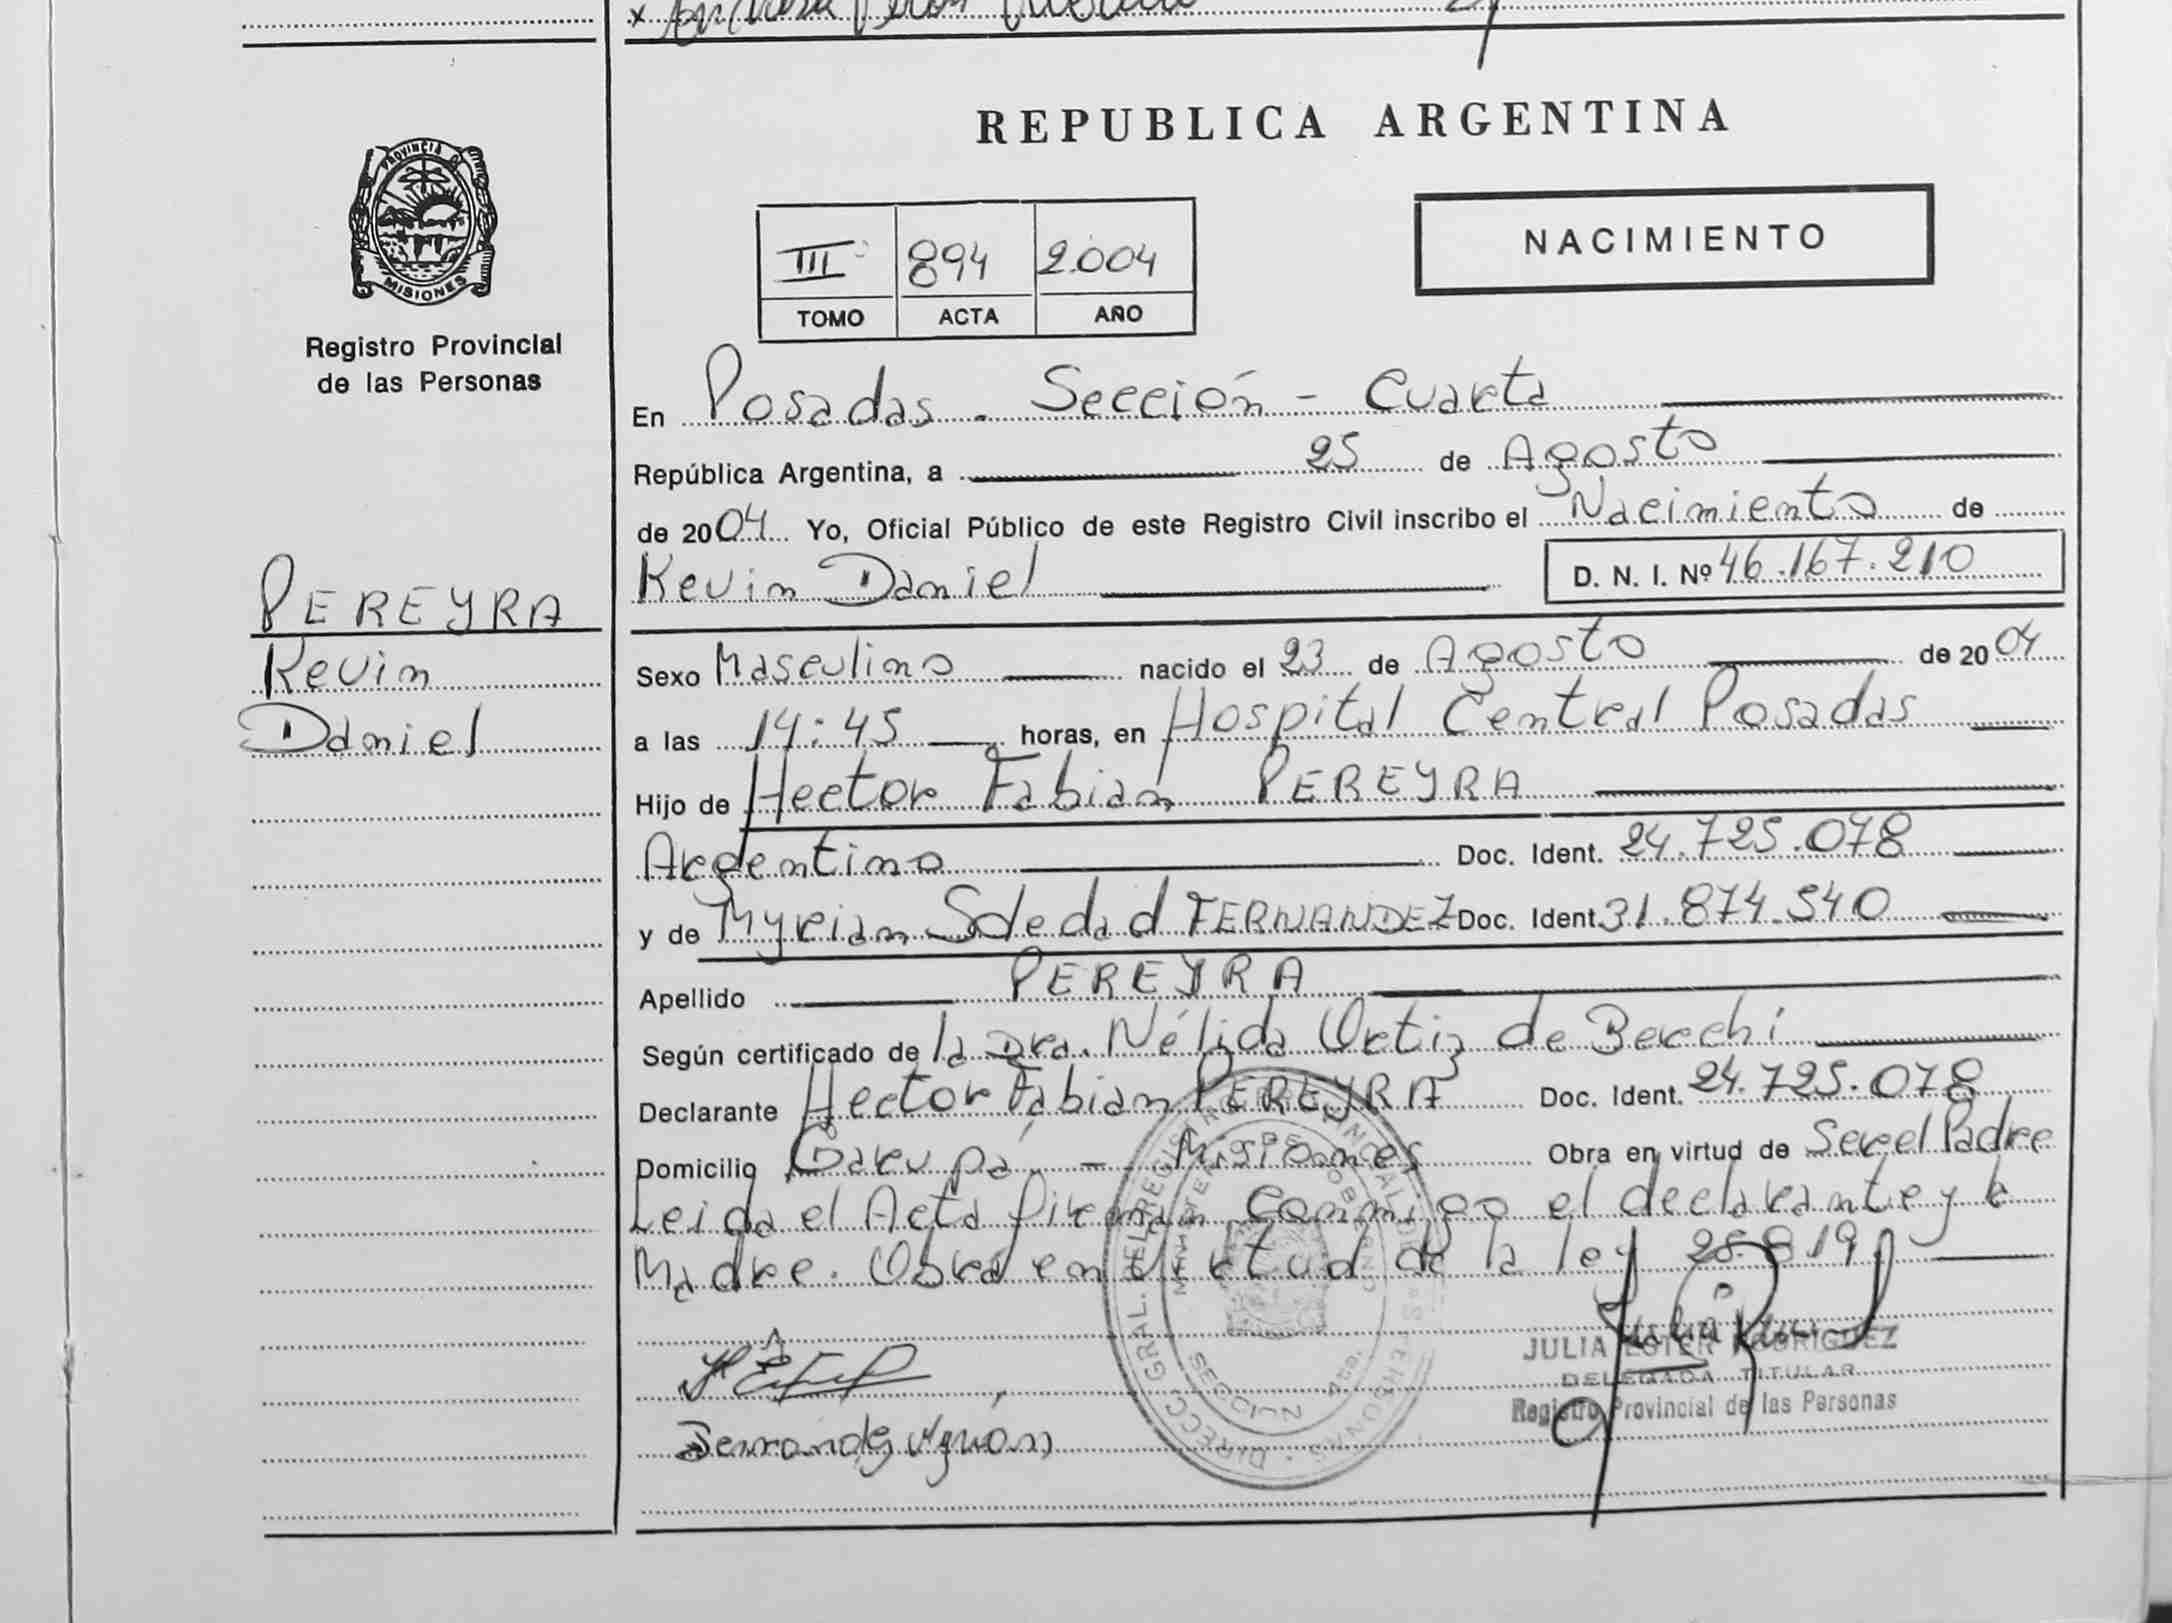 REPUBLICA ARGENTINA
PROVINCIA DE
MISIONES
Registro Provincial
de las Personas
NACIMIENTO
III 894 2.004
TOMO ACTA AÑO
En Posadas. Sección - Cuarta
República Argentina, a 25 de Agosto
de 2004 Yo, Oficial Público de este Registro Civil inscribo el Nacimiento de
Kevin Daniel D. N. I. Nº 46.167.210
PEREYRA
Kevin
Daniel
Sexo Masculino nacido el 23 de Agosto de 2004
a las 14:45 horas, en Hospital Central Posadas
Hijo de Hector Fabian PEREYRA
Argentino Doc. Ident. 24.725.078
y de Myrian Soledad FERNANDEZ Doc. Ident. 31.874.540
Apellido PEREYRA
Según certificado de la Dra. Nélida Ortiz de Becchi
Declarante Hector Fabian PEREYRA Doc. Ident. 24.725.078
Domicilio Garupá - Misiones Obra en virtud de Ser el Padre
Leida el Acta firman conmigo el declarante y la
Madre. Obra en virtud de la ley
JULIA ESTER RODRIGUEZ
DELEGADA TITULAR
Registro Provincial de las Personas